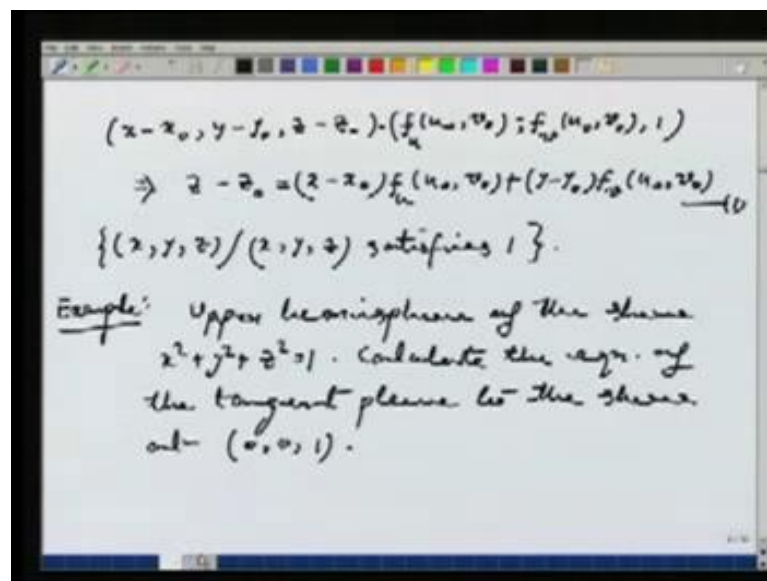 (x - x₀, y - y₀, z - z₀) · (f_u(u₀, v₀), f_v(u₀, v₀), 1)
⇒ z - z₀ = (x - x₀) f_u(u₀, v₀) + (y - y₀) f_v(u₀, v₀) —(1)
{(x, y, z) / (x, y, z) satisfies 1}.
Example: Upper hemisphere of the sphere
x² + y² + z² = 1. Calculate the eqn. of
the tangent plane to the sphere
at (0, 0, 1).